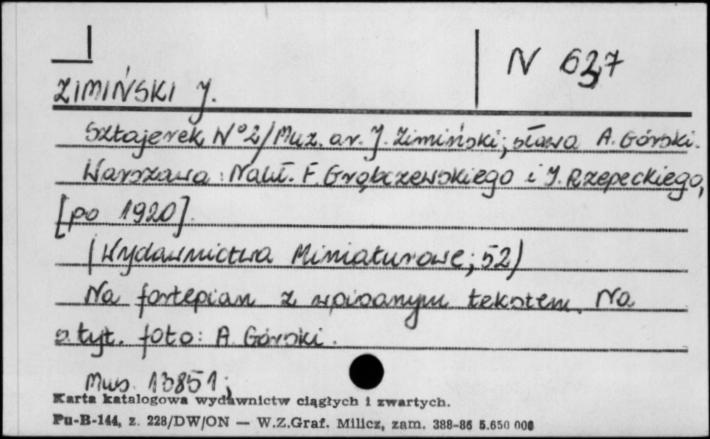 N 637
ZIMIŃSKI J.
Sztajerek Nº 2 / Muz. ar. J. Zimiński; słowa A. Górski.
Warszawa: Nakł. F. Grąbczewskiego i J. Rzepeckiego,
[po 1920].
(Wydawnictwa Miniaturowe; 52)
Na fortepian z wpisanym tekstem. Na
s. tyt. foto: A. Górski.
Mus. 13851;
Karta katalogowa wydawnictw ciągłych i zwartych.
Pu-B-144, z. 228/DW/ON — W.Z.Graf. Milicz, zam. 388-86 5.650 000